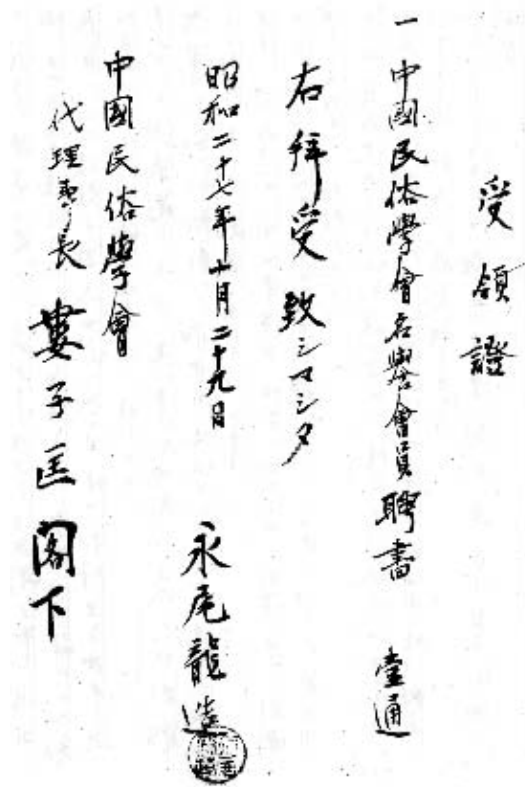 受領證
一 中國民俗學會名譽會員聘書 壹通
右拜受致シマシタ
昭和二十七年十月二十九日
永尾龍造
中國民俗學會
代理事長 婁子匡 閣下